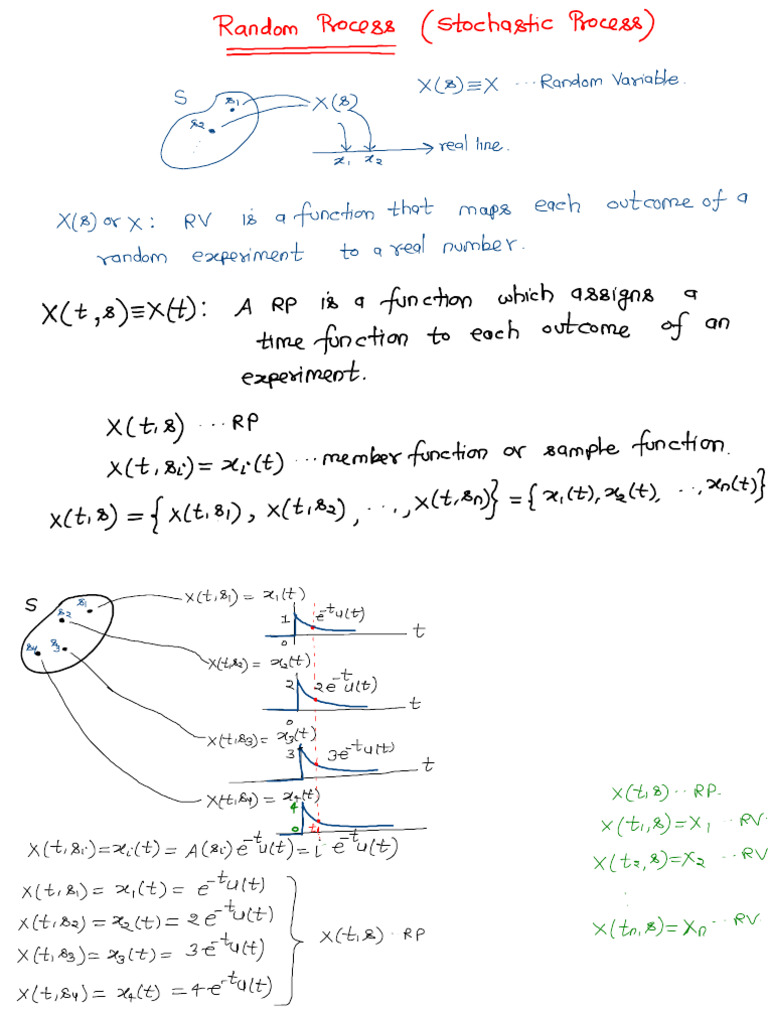 Random Process (Stochastic Process)
X(s)≡X ... Random Variable.
S s1 s2 X(s)
x1 x2 real line.
X(s) or X: RV is a function that maps each outcome of a
random experiment to a real number.
X(t,s)≡X(t): A RP is a function which assigns a
time function to each outcome of an
experiment.
X(t,s) ... RP
X(t,si)=xi(t) ... member function or sample function.
X(t,s)={X(t,s1), X(t,s2), ..., X(t,sn)}={x1(t), x2(t), ..., xn(t)}
S s1 s2 s3 s4
X(t,s1) = x1(t)
1 e^-t u(t)
0 t
X(t,s2) = x2(t)
2 2e^-t u(t)
0 t
X(t,s3) = x3(t)
3 3e^-t u(t)
t
X(t,s4) = x4(t)
4
0 t1
X(t,si)=xi(t) = A(si)e^-t u(t)=i e^-t u(t)
X(t,s1) = x1(t) = e^-t u(t)
X(t,s2) = x2(t) = 2e^-t u(t)
X(t,s3) = x3(t) = 3e^-t u(t)
X(t,s4) = x4(t) = 4e^-t u(t)
X(t,s) . RP
X(t,s) .. RP.
X(t1,s)=X1 .. RV
X(t2,s)=X2 .. RV
⋮
X(tn,s)=Xn .. RV